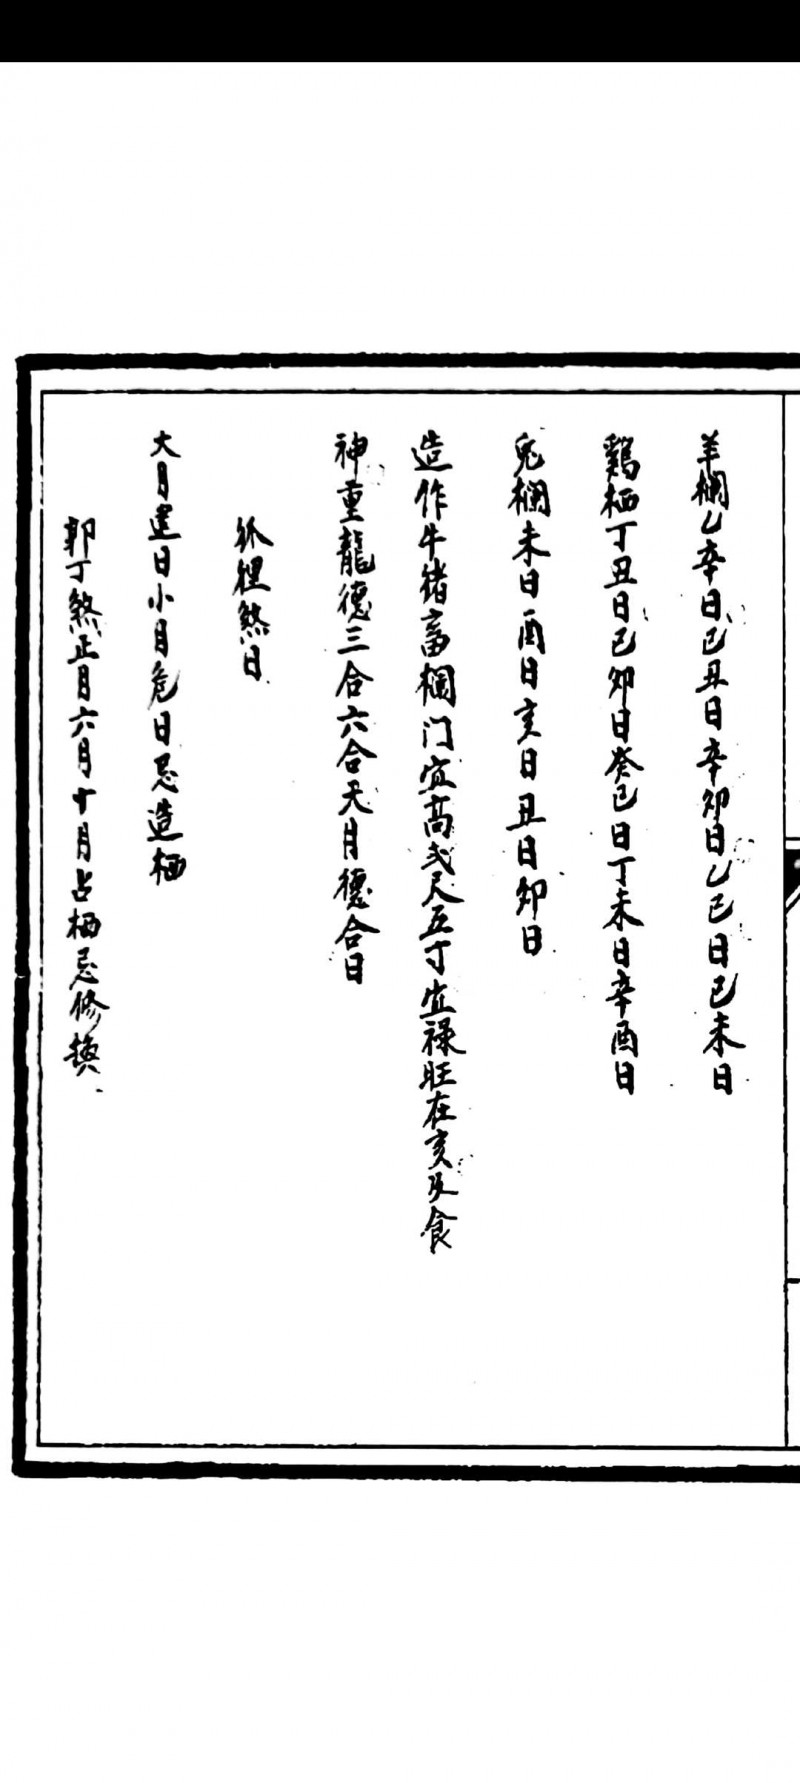 羊欄乙辛日己丑日辛卯日乙巳日己未日
鷄栖丁丑日己卯日癸巳日丁未日辛酉日
兎欄未日酉日亥日丑日卯日
造作牛猪畜欄门宜高弍尺五寸宜禄旺在亥及食
神重龍德三合六合天月德合日
狐狸煞日
大月建日小月危日忌造栖
郭丁煞正月六月十月占栖忌修換